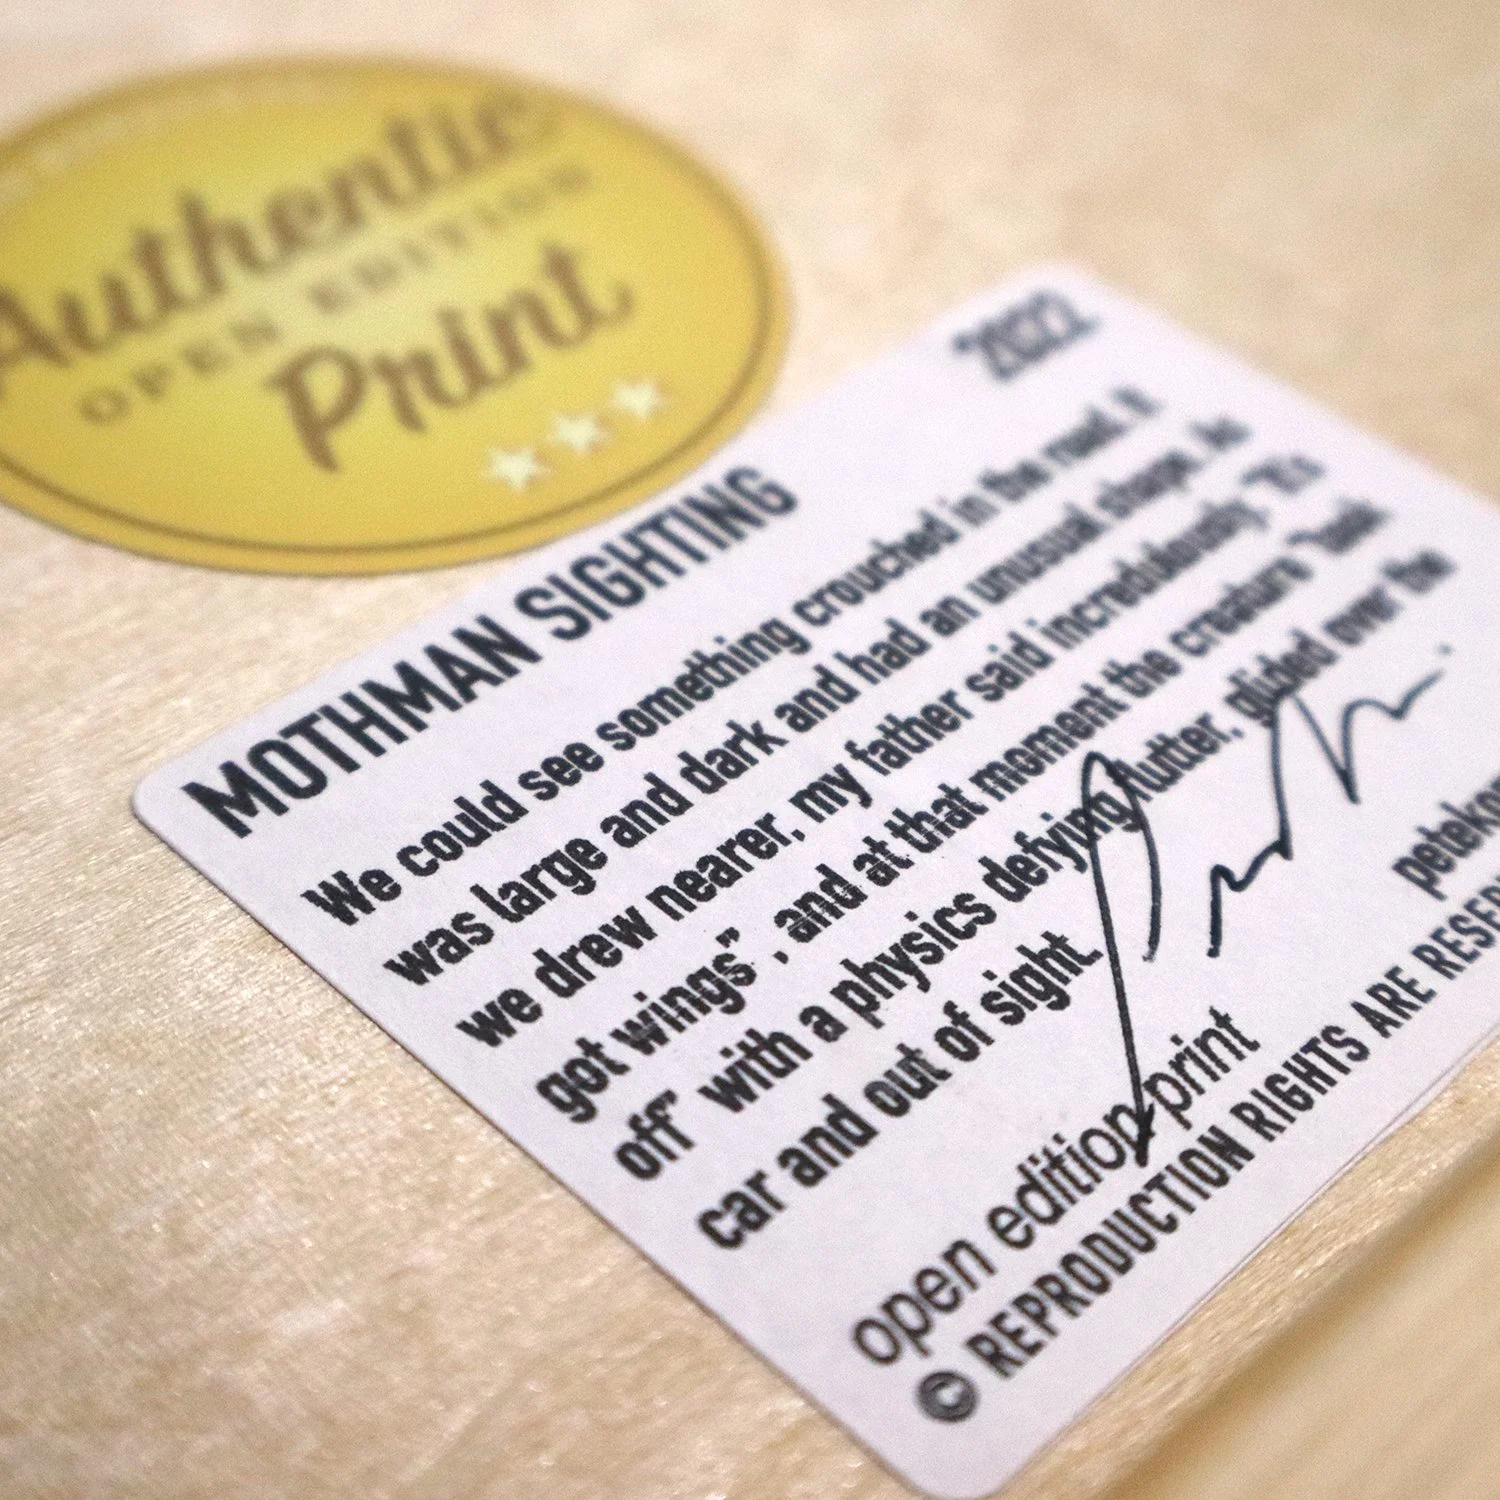 Authentic
OPEN EDITION
Print
MOTHMAN SIGHTING
2022
We could see something crouched in the road. It
was large and dark and had an unusual shape. As
we drew nearer, my father said incredulously "It's
got wings", and at that moment the creature "took
off" with a physics defying flutter, glided over the
car and out of sight.
open edition print
petekon
© REPRODUCTION RIGHTS ARE RESERV